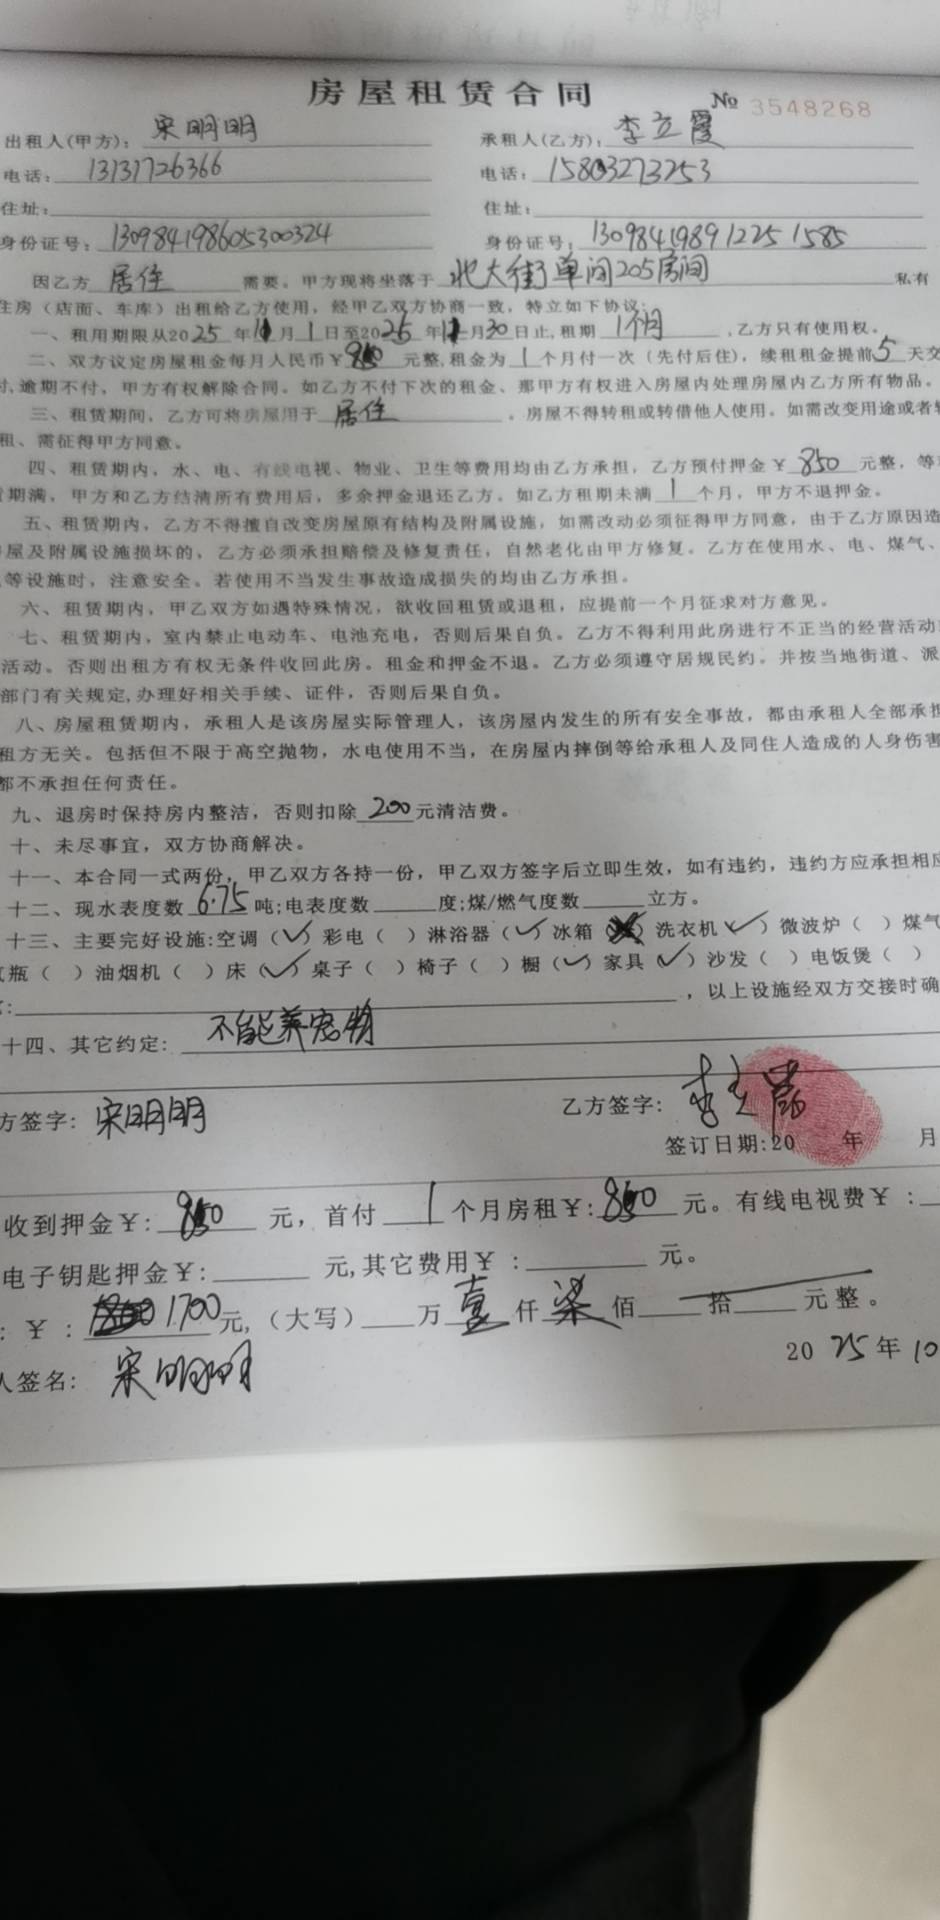 房屋租赁合同
№ 3548268
出租人(甲方): 宋明明 承租人(乙方): 李立霞
电话: 13131726366 电话: 15803273253
住址: 住址:
身份证号: 130984198605300324 身份证号: 130984198912251585
因乙方 居住 需要。甲方现将坐落于 北大街单间205房间 私有
住房（店面、车库）出租给乙方使用，经甲乙双方协商一致，特立如下协议:
一、租用期限从2025年11月1日至2025年11月30日止,租期 1个月 ,乙方只有使用权。
二、双方议定房屋租金每月人民币￥850元整,租金为1个月付一次（先付后住），续租租金提前5天交
付,逾期不付，甲方有权解除合同。如乙方不付下次的租金、那甲方有权进入房屋内处理房屋内乙方所有物品。
三、租赁期间，乙方可将房屋用于 居住 。房屋不得转租或转借他人使用。如需改变用途或者转
租、需征得甲方同意。
四、租赁期内，水、电、有线电视、物业、卫生等费用均由乙方承担，乙方预付押金￥850元整，等
期满，甲方和乙方结清所有费用后，多余押金退还乙方。如乙方租期未满1个月，甲方不退押金。
五、租赁期内，乙方不得擅自改变房屋原有结构及附属设施，如需改动必须征得甲方同意，由于乙方原因造
屋及附属设施损坏的，乙方必须承担赔偿及修复责任，自然老化由甲方修复。乙方在使用水、电、煤气、
等设施时，注意安全。若使用不当发生事故造成损失的均由乙方承担。
六、租赁期内，甲乙双方如遇特殊情况，欲收回租赁或退租，应提前一个月征求对方意见。
七、租赁期内，室内禁止电动车、电池充电，否则后果自负。乙方不得利用此房进行不正当的经营活动
活动。否则出租方有权无条件收回此房。租金和押金不退。乙方必须遵守居规民约。并按当地街道、派
部门有关规定,办理好相关手续、证件，否则后果自负。
八、房屋租赁期内，承租人是该房屋实际管理人，该房屋内发生的所有安全事故，都由承租人全部承担
租方无关。包括但不限于高空抛物，水电使用不当，在房屋内摔倒等给承租人及同住人造成的人身伤害
都不承担任何责任。
九、退房时保持房内整洁，否则扣除200元清洁费。
十、未尽事宜，双方协商解决。
十一、本合同一式两份，甲乙双方各持一份，甲乙双方签字后立即生效，如有违约，违约方应承担相应
十二、现水表度数6.75吨;电表度数 度;煤/燃气度数 立方。
十三、主要完好设施:空调（✓）彩电（ ）淋浴器（✓）冰箱（ ）洗衣机（✓）微波炉（ ）煤气
瓶（ ）油烟机（ ）床（✓）桌子（ ）椅子（ ）橱（✓）家具（✓）沙发（ ）电饭煲（ ）
，以上设施经双方交接时确
十四、其它约定: 不能养宠物
方签字: 宋明明 乙方签字: 李立霞
签订日期:20 年 月
收到押金￥: 850 元，首付 1 个月房租￥: 850 元。有线电视费￥：
电子钥匙押金￥: 元,其它费用￥： 元。
：￥：1700元,（大写） 万 壹 仟 柒 佰 拾 元整。
人签名: 宋明明 2025年10